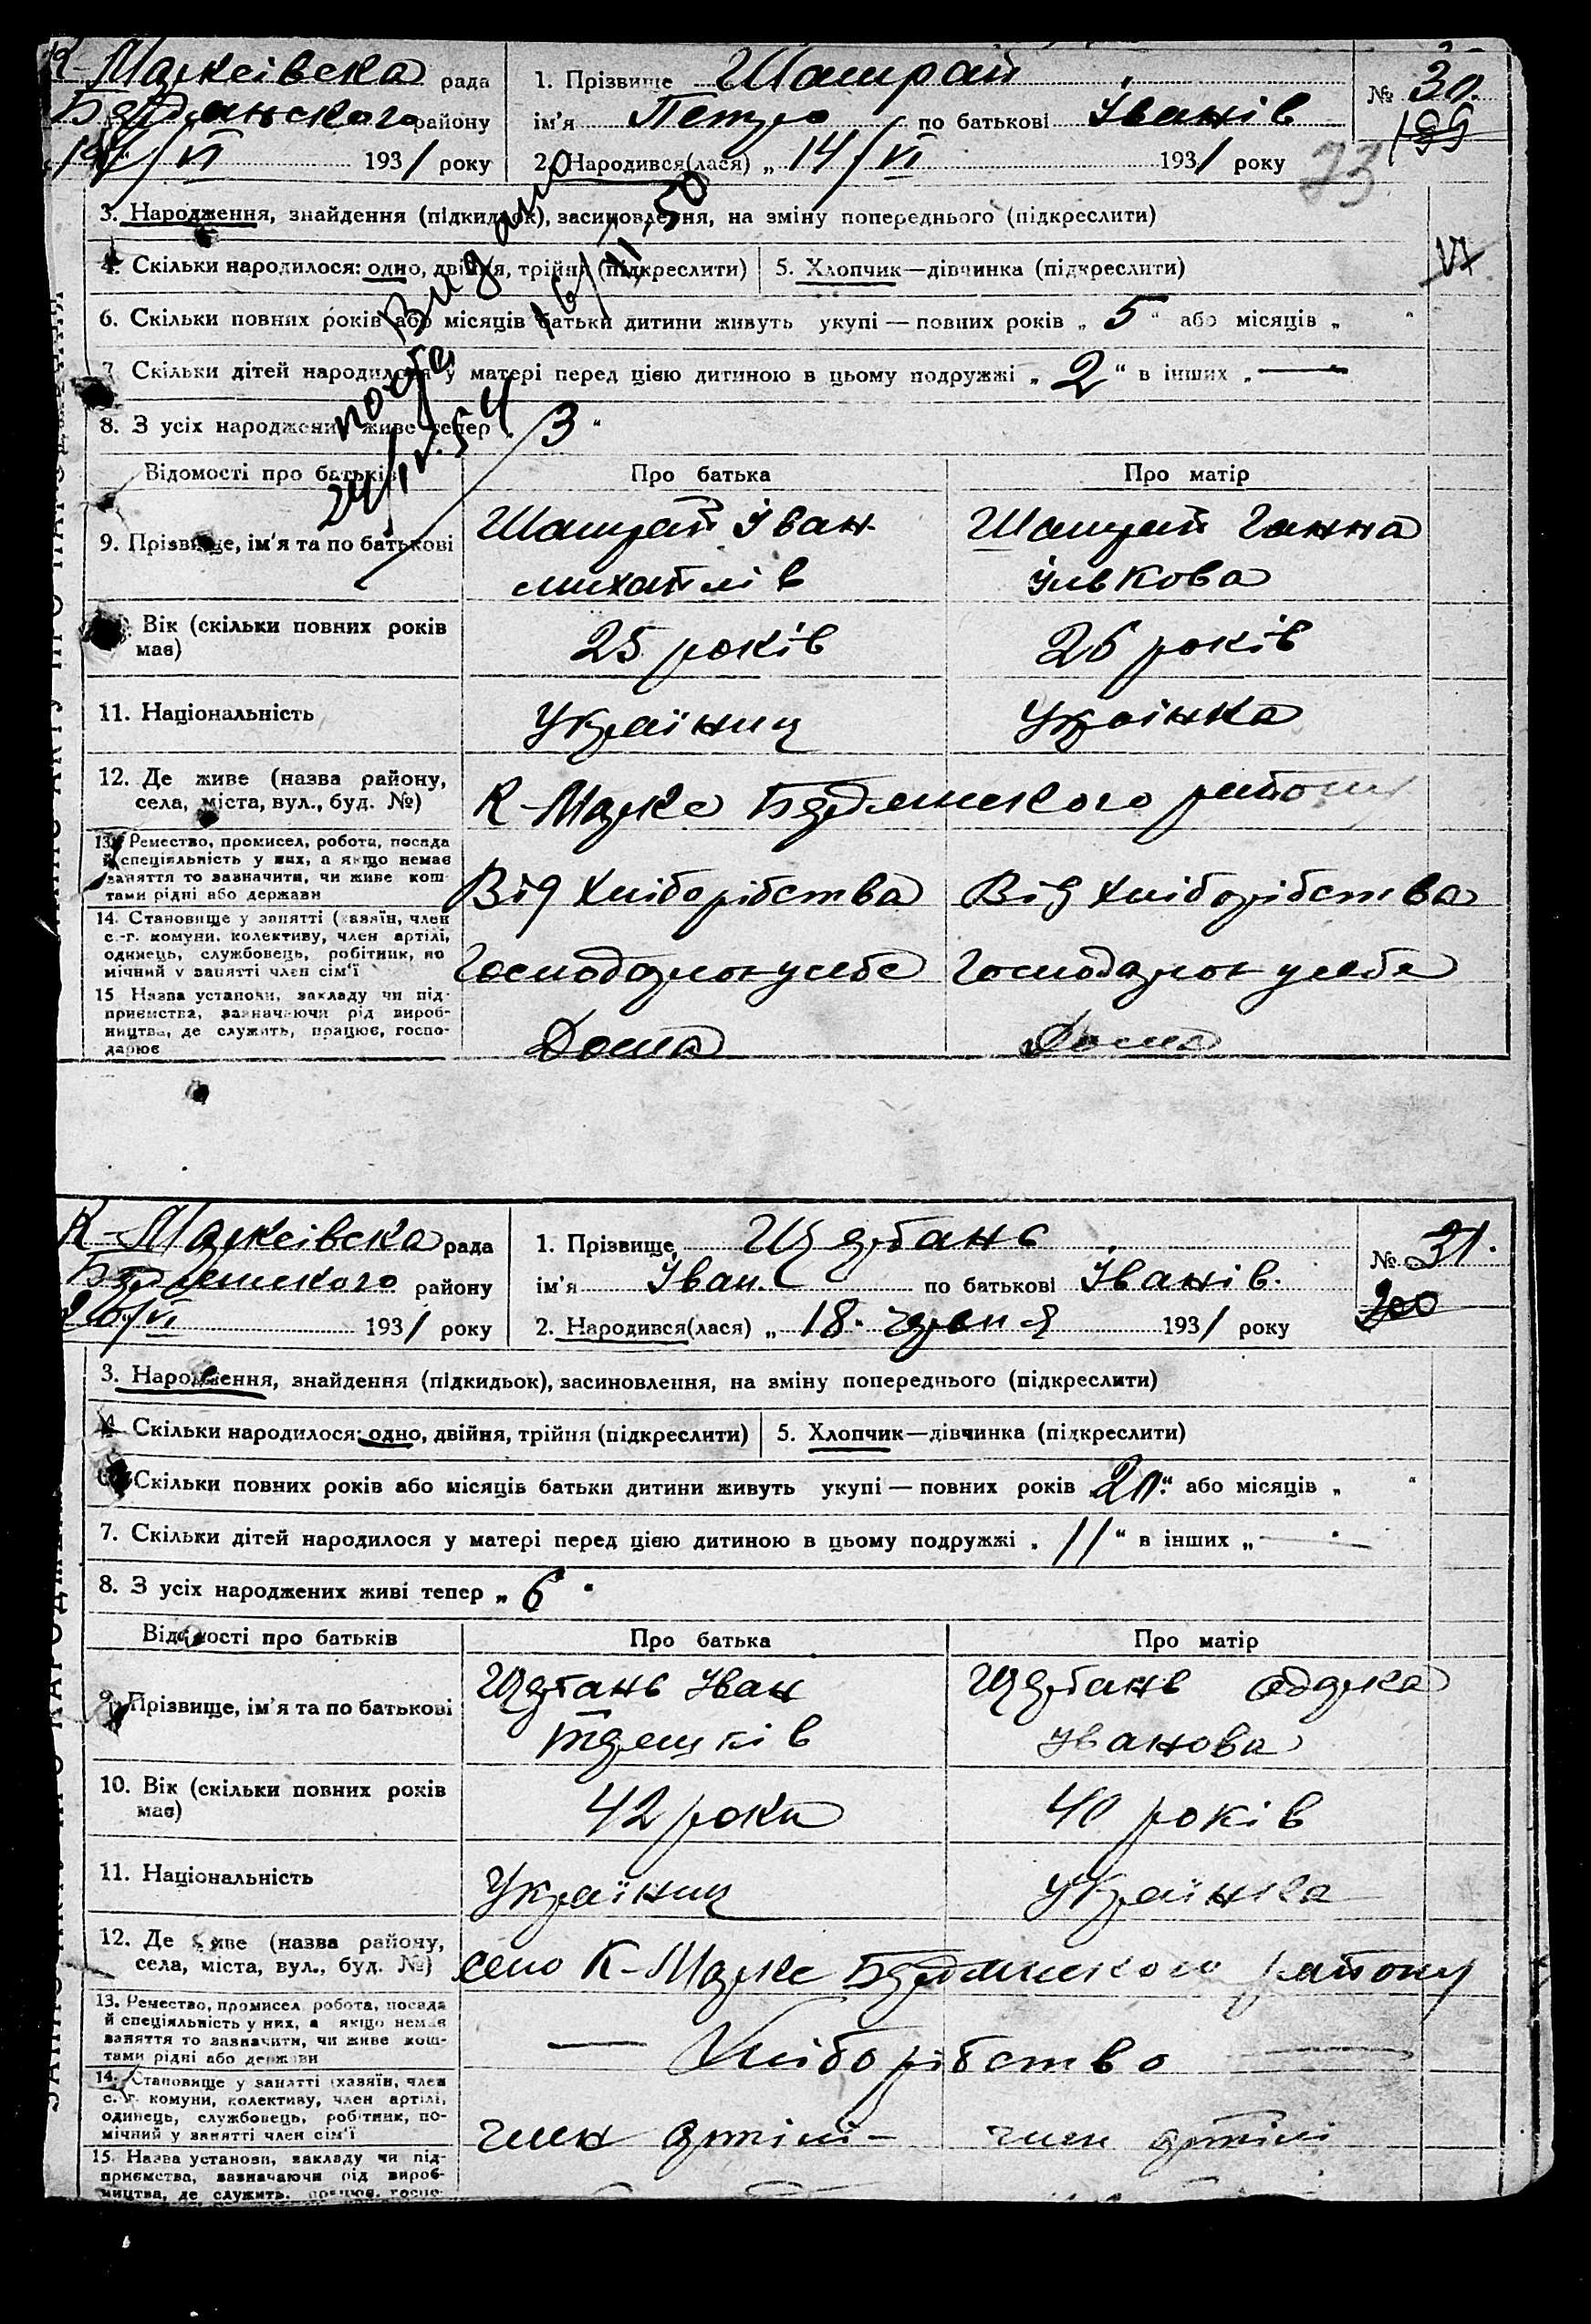 К-Маркеівска рада
Бердянского району
14/VI 1931 року
1. Прізвище Шатрай
ім'я Петро по батькові Іванів
2. Народився(лася) „ 14/VI 1931 року
№ 30.
199
73
3. Народження, знайдення (підкидьок), засиновлення, на зміну попереднього (підкреслити)
4. Скільки народилося: одно, двійня, трійня (підкреслити) 5. Хлопчик—дівчинка (підкреслити)
VI
6. Скільки повних років або місяців батьки дитини живуть укупі — повних років „ 5 “ або місяців „ “
7. Скільки дітей народилося у матері перед цією дитиною в цьому подружжі „ 2 “ в інших „ —
8. З усіх народжених живе тепер 3 “
Видано
16/II 50
24/IV.54
Відомості про батьків Про батька Про матір
9. Прізвище, ім'я та по батькові
Шатрай Іван
михайлів
Шатрай Ганна
ільКова
Вік (скільки повних років
має)
25 років
26 років
11. Національність Україниц Українка
12. Де живе (назва району,
села, міста, вул., буд. №)
К-Марке Бердянского району
13. Ремество, промисел, робота, посада
й спеціяльність у них, а якщо немає
заняття то зазначити, чи живе кош-
тами рідні або держави
Від Хліборібства Від Хліборібства
14. Становище у занятті (хазяїн, член
с.-г. комуни, колективу, член артілі,
одинець, службовець, робітник, по
мічний у занятті член сім'ї
Господарюн усебе Господарюн усебе
15 Назва установи, закладу чи під-
приємства, зазначаючи рід вироб-
ництва, де служить, працює, госпо-
дарює
Дома Дома
К-Маркеівска рада
Бердянского району
20/VI 1931 року
1. Прізвище Щербань
ім'я Іван. по батькові Іванів.
2. Народився(лася) „ 18. червня 1931 року
№ 31.
200
3. Народження, знайдення (підкидьок), засиновлення, на зміну попереднього (підкреслити)
4. Скільки народилося: одно, двійня, трійня (підкреслити) 5. Хлопчик—дівчинка (підкреслити)
Скільки повних років або місяців батьки дитини живуть укупі — повних років 20 “ або місяців „ “
7. Скільки дітей народилося у матері перед цією дитиною в цьому подружжі „ 11 “ в інших „ —
8. З усіх народжених живі тепер „ 6 “
Відомості про батьків Про батька Про матір
9. Прізвище, ім'я та по батькові
Щербань Іван
Щербань
Іванова
10. Вік (скільки повних років
має)
42 роки
40 років
11. Національність Україниц Українка
12. Де живе (назва району,
села, міста, вул., буд. №)
село К-Марке Бердянского району
13. Ремество, промисел, робота, посада
й спеціяльність у них, а якщо немає
заняття то зазначити, чи живе кош-
тами рідні або держави
— Хліборібство —
14. Становище у занятті (хазяїн, член
с.-г. комуни, колективу, член артілі,
одинець, службовець, робітник, по-
мічний у занятті член сім'ї
член артілі — член артілі
15. Назва установи, закладу чи під-
приємства, зазначаючи рід вироб-
ництва, де служить, працює, госпо-